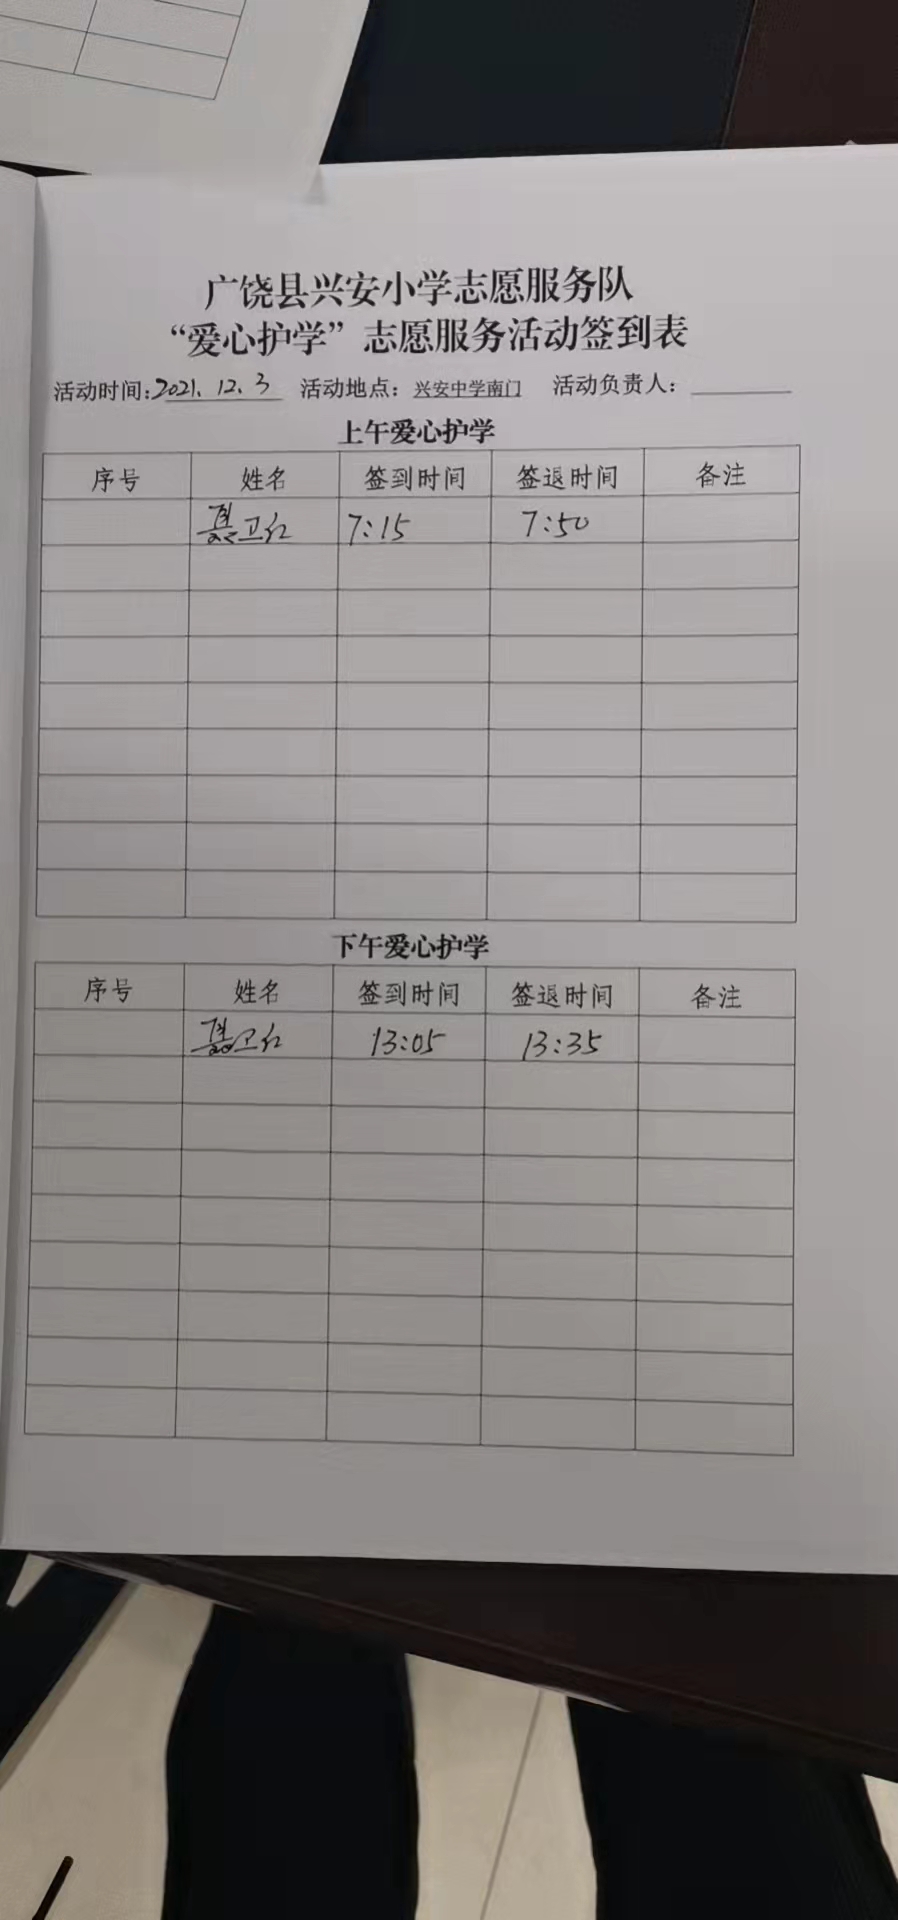 广饶县兴安小学志愿服务队
“爱心护学”志愿服务活动签到表
活动时间:2021.12.3 活动地点：兴安中学南门 活动负责人：
上午爱心护学
序号 姓名 签到时间 签退时间 备注
聂卫红 7:15 7:50
下午爱心护学
序号 姓名 签到时间 签退时间 备注
聂卫红 13:05 13:35